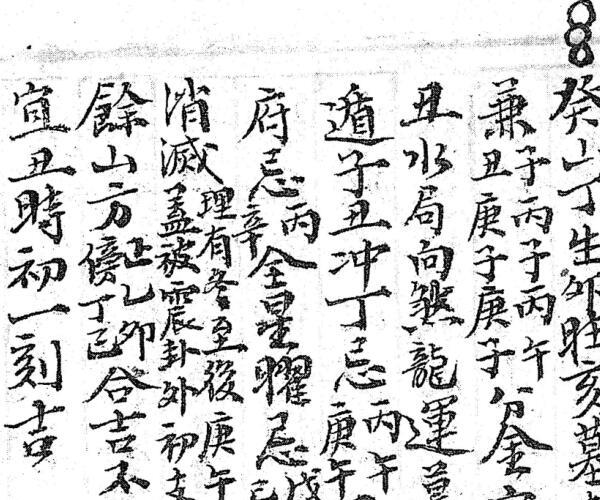 癸山丁生卯旺亥墓
兼丑庚子庚子子丙子丙午分金
丑水局向煞龍運
遁子丑冲丁忌庚午丙午
府忌辛丙金星曜忌
消滅蓋被震卦外初支理有冬至後庚午
餘山方傍丁巳正乙卯合吉不
宜丑時初一刻吉